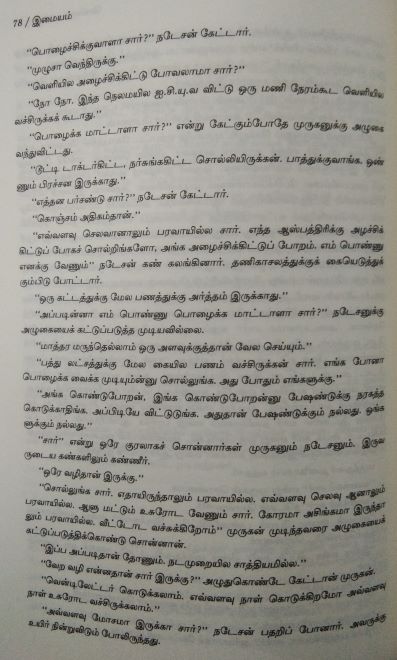 78 / இமையம்
“பொழைச்சிக்குவாளா சார்?” நடேசன் கேட்டார்.
“முழுசா வெந்திருக்கு.”
“வெளியில அழைச்சிக்கிட்டு போவலாமா சார்?”
“நோ நோ. இந்த நெலமயில ஐ.சி.யு.வ விட்டு ஒரு மணி நேரம்கூட வெளியில
வச்சிருக்கக் கூடாது.”
“பொழைக்க மாட்டாளா சார்?” என்று கேட்கும்போதே முருகனுக்கு அழுகை
வந்துவிட்டது.
“டூட்டி டாக்டர்கிட்ட, நர்சுங்ககிட்ட சொல்லியிருக்கன். பாத்துக்குவாங்க. ஒண்
ணும் பிரச்சன இருக்காது.”
“எத்தன பர்சண்டு சார்?” நடேசன் கேட்டார்.
“கொஞ்சம் அதிகம்தான்.”
“எவ்வளவு செலவானாலும் பரவாயில்ல சார். எந்த ஆஸ்பத்திரிக்கு அழச்சிக்
கிட்டுப் போகச் சொல்றிங்களோ, அங்க அழைச்சிக்கிட்டுப் போறம். எம் பொண்ணு
எனக்கு வேணும்” நடேசன் கண் கலங்கினார். தணிகாசலத்துக்குக் கையெடுத்துக்
கும்பிடு போட்டார்.
“ஒரு கட்டத்துக்கு மேல பணத்துக்கு அர்த்தம் இருக்காது.”
“அப்படின்னா எம் பொண்ணு பொழைக்க மாட்டாளா சார்?” நடேசனுக்கு
அழுகையைக் கட்டுப்படுத்த முடியவில்லை.
“மாத்தர மருந்தெல்லாம் ஒரு அளவுக்குத்தான் வேல செய்யும்.”
“பத்து லட்சத்துக்கு மேல கையில பணம் வச்சிருக்கன் சார். எங்க போனா
பொழைக்க வைக்க முடியும்ன்னு சொல்லுங்க. அது போதும் எங்களுக்கு.”
“அங்க கொண்டுபோறன், இங்க கொண்டுபோறன்னு பேஷண்டுக்கு நரகத்த
கொடுக்காதிங்க. அப்படியே விட்டுடுங்க. அதுதான் பேஷண்டுக்கும் நல்லது. ஒங்க
ளுக்கும் நல்லது.”
“சார்” என்று ஒரே குரலாகச் சொன்னார்கள் முருகனும் நடேசனும். இருவ
ருடைய கண்களிலும் கண்ணீர்.
“ஒரே வழிதான் இருக்கு.”
“சொல்லுங்க சார். எதாயிருந்தாலும் பரவாயில்ல. எவ்வளவு செலவு ஆனாலும்
பரவாயில்ல. ஆளு மட்டும் உசுரோட வேணும் சார். கோரமா அசிங்கமா இருந்தா
லும் பரவாயில்ல. வீட்டோட வச்சுக்கிறோம்” முருகன் முடிந்தவரை அழுகையைக்
கட்டுப்படுத்திக்கொண்டு சொன்னான்.
“இப்ப அப்படிதான் தோணும். நடமுறையில சாத்தியமில்ல.”
“வேற வழி என்னதான் சார் இருக்கு?” அழுதுகொண்டே கேட்டான் முருகன்.
“வெண்டிலேட்டர் கொடுக்கலாம். எவ்வளவு நாள் கொடுக்கிறமோ அவ்வளவு
நாள் உசுரோட வச்சிருக்கலாம்.”
“அவ்வளவு மோசமா இருக்கா சார்?” நடேசன் பதறிப் போனார். அவருக்கு
உயிர் நின்றுவிடும் போலிருந்தது.